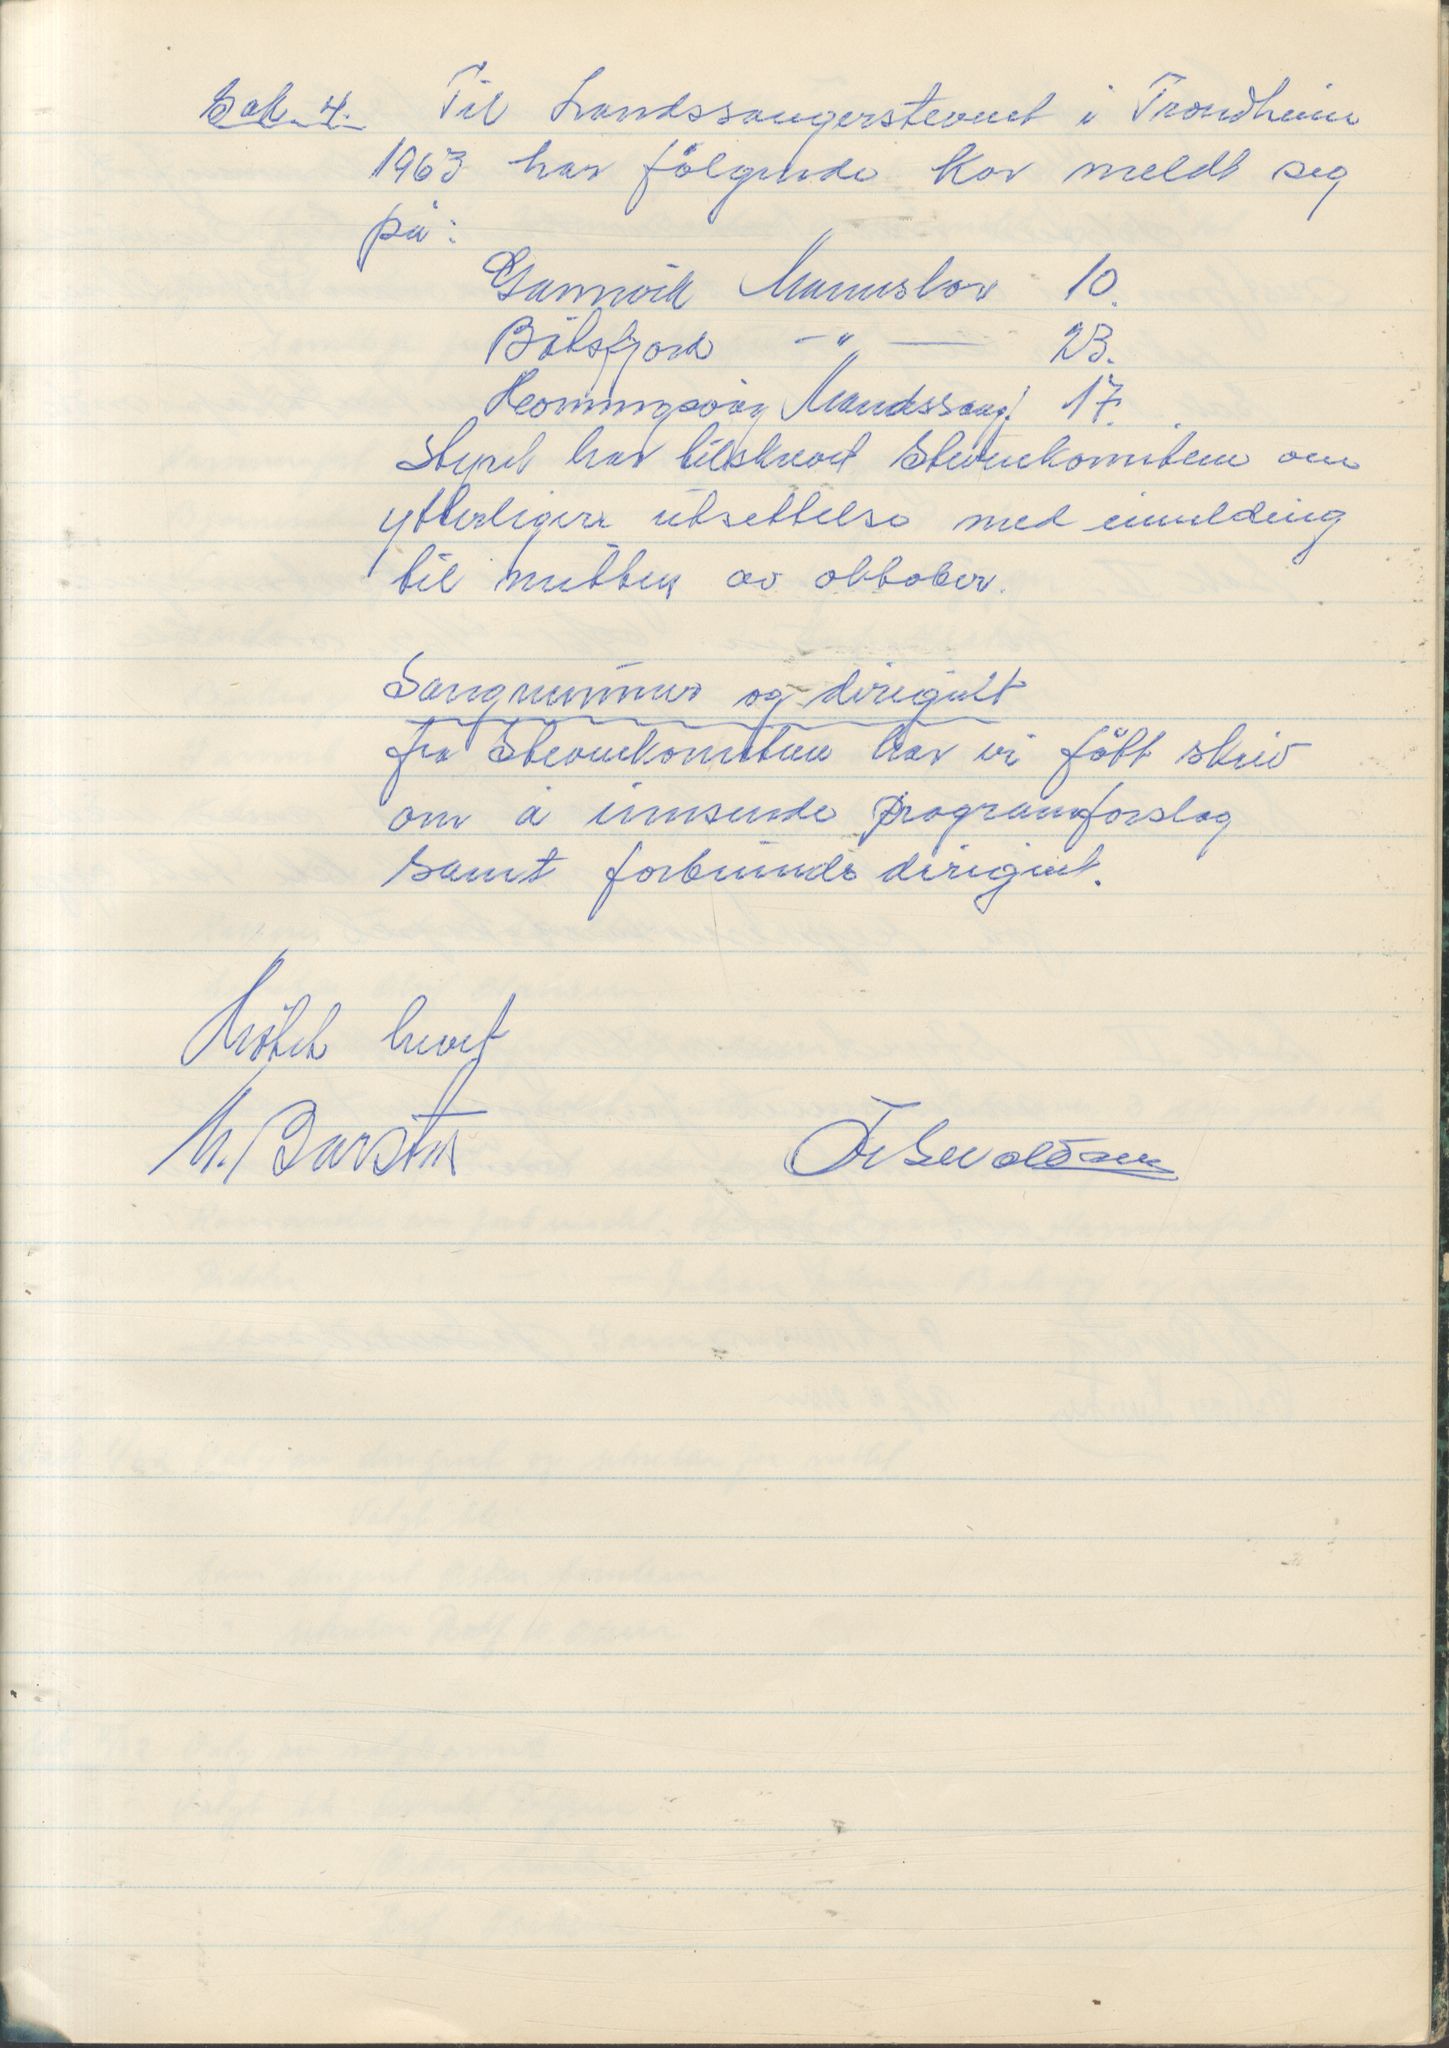 Sak. 4. Til Landssangerstevnet i Trondheim
1963 har følgende kor meldt seg
på:
Gamvik Mannskor 10.
Båtsfjord -"- 23.
Honningsvåg Mandssang. 17.
Styret har tilskrevet Stevnekomiteen om
ytterligere utsettelse med innmelding
til midten av oktober.
Sangnummer og dirigent
fra Stevnekomiteen har vi fått skriv
om å innsende programforslag
samt forbunds dirigent.
Møtet hevet